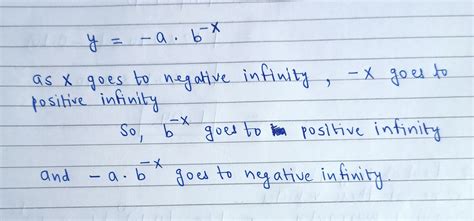 y = -a · b^-x
as x goes to negative infinity, -x goes to
positive infinity
So, b^-x goes to positive infinity
and -a · b^-x goes to negative infinity.